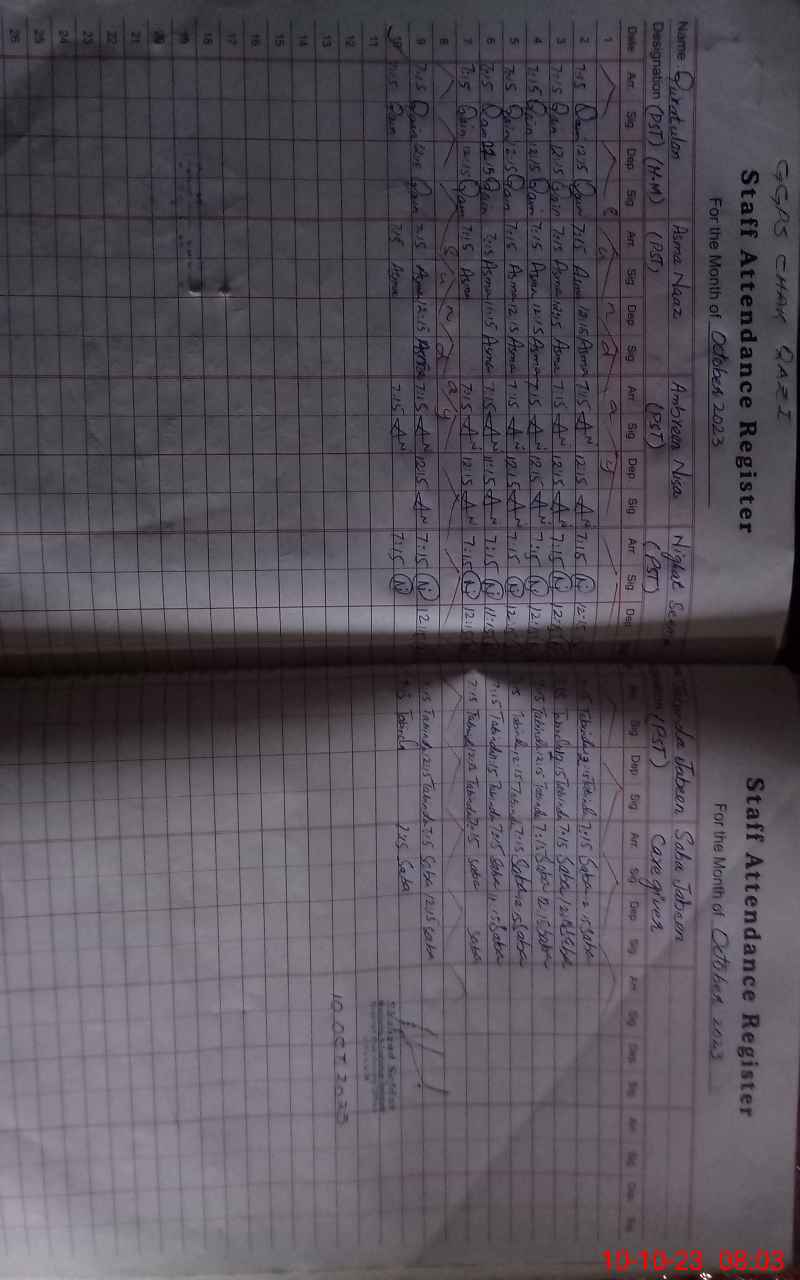 GGPS CHAK QAZI
Staff Attendance Register
For the Month of October 2023
Name: Quratulon Asma Naaz Ambreen Nisa Nighat Seema
Designation (PST) (H.M) (PST) (PST) (PST)
Date Arr. Sig Dep Sig Arr. Sig Dep Sig Arr. Sig Dep Sig Arr. Sig Dep
1 S u n d a y
2 7:15 Qain 12:15 Qain 7:15 Asma 12:15 Asma 7:15 AN 12:15 AN 7:15 N 12:15
3 7:15 Qain 12:15 Qain 7:15 Asma 12:15 Asma 7:15 AN 12:15 AN 7:15 N 12:15
4 7:15 Qain 12:15 Qain 7:15 Asma 12:15 Asma 7:15 AN 12:15 AN 7:15 N 12:15
5 7:15 Qain 12:15 Qain 7:15 Asma 12:15 Asma 7:15 AN 12:15 AN 7:15 N 12:15
6 7:15 Qain Qain 7:15 Asma 11:15 Asma 7:15 AN 11:15 AN 7:15 N 11:15
7 7:15 Qain 12:15 Qain 7:15 Asma 7:15 AN 12:15 AN 7:15 N 12:15
8 S u n d a y
9 7:15 Qain 12:15 Qain 7:15 Asma 12:15 Asma 7:15 AN 12:15 AN 7:15 N 12:15
10 7:15 Qain 7:15 Asma 7:15 AN 7:15 N
11
12
13
14
15
16
17
18
19
20
21
22
23
24
25
26
Staff Attendance Register
For the Month of October 2023
Jabeen Saba Jabeen
(PST) Care given
Sig Dep Sig Arr. Sig Dep Sig Arr Sig Dep Sig Arr Sig Dep Sig
Tabinda 12:15 Tabinda 7:15 Saba 12:15 Saba
Tabinda 12:15 Tabinda 7:15 Saba 12:15 Saba
7:15 Tabinda 12:15 Tabinda 7:15 Saba 12:15 Saba
Tabinda 12:15 Tabinda 7:15 Saba 12:15 Saba
7:15 Tabinda 11:15 Tabinda 7:15 Saba 11:15 Saba
7:15 Tabinda 12:15 Tabinda 7:15 Saba Saba
7:15 Tabinda 12:15 Tabinda 7:15 Saba 12:15 Saba
Tabinda 7:15 Saba
10 OCT 2023
10-10-23 08:03